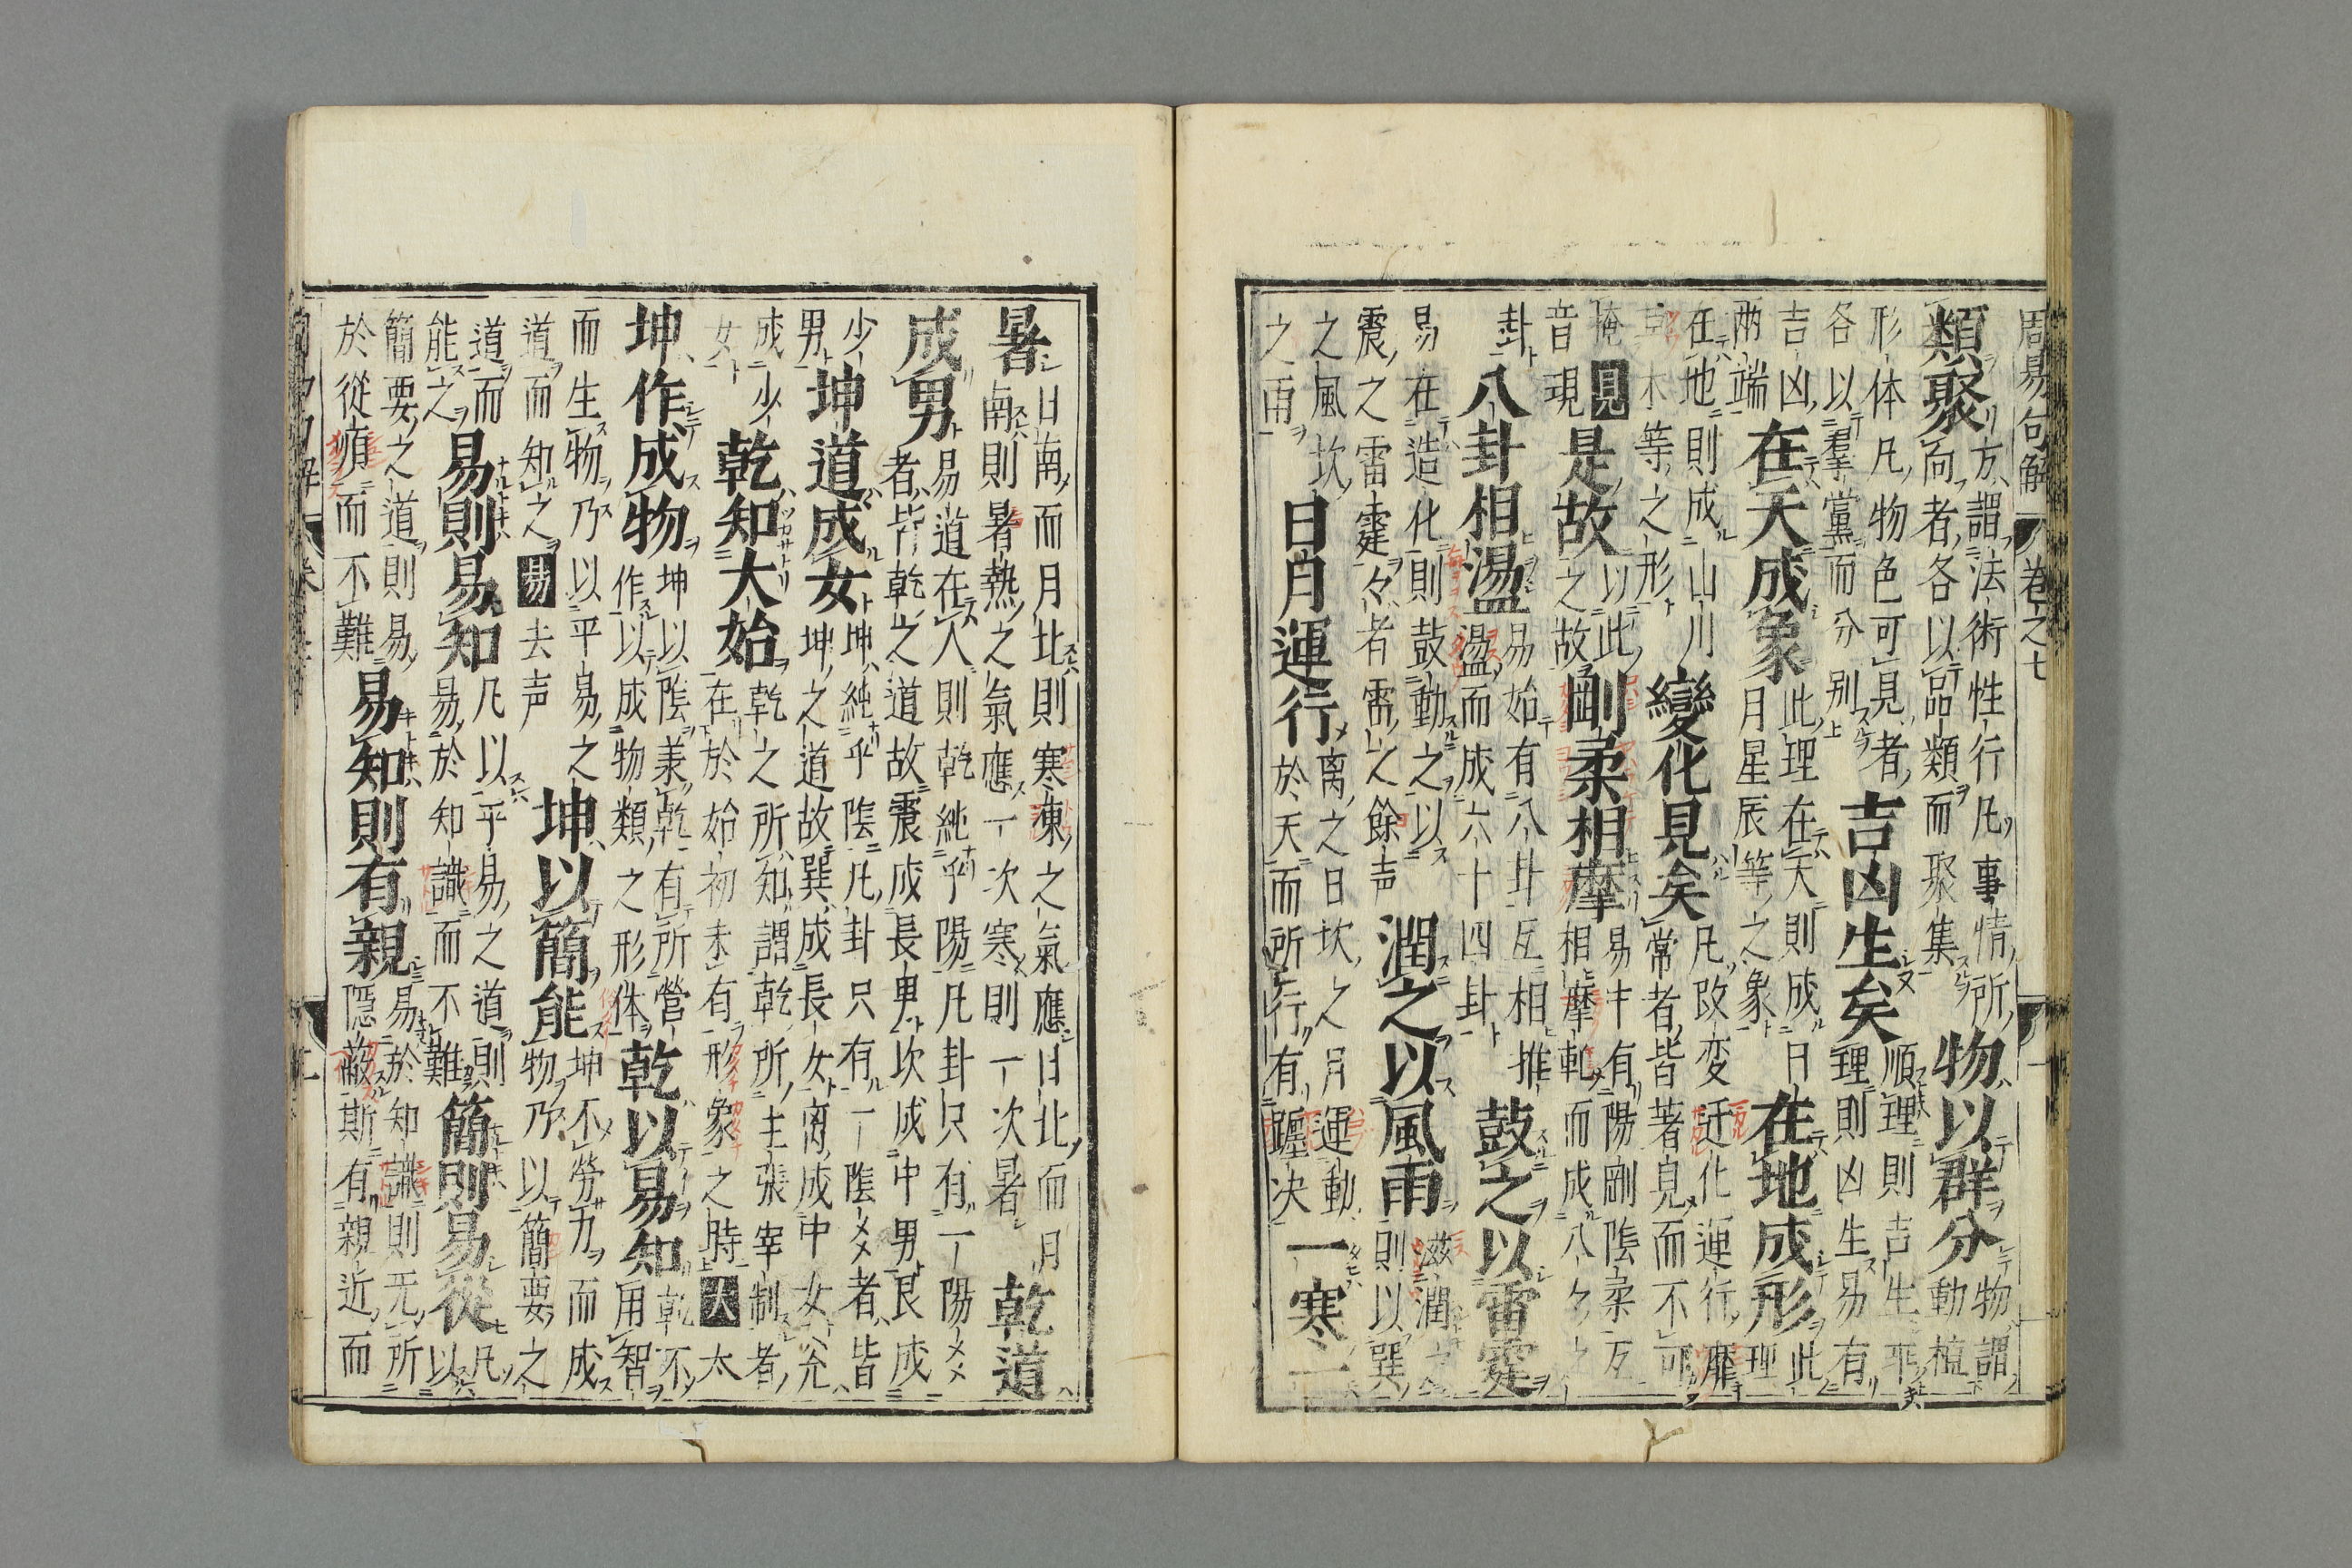 周易句解　卷之七　一
類聚方謂法術性行凡事情所向者各以品類而聚集物以群分物謂動植
形体凡物色可見者各以羣黨而分別吉凶生矣順理則吉生乖理則凶生易有
吉凶兩端在天成象此理在天則成日月星辰等之象在地成形此理
在地則成山川草木等之形變化見矣凡改变迁化運行靡常者皆著見而不可
掩見音現是故以此之故剛柔相摩易中有陽剛陰柔互相摩軋而成八个之
卦八卦相盪易始有八卦互相推盪而成六十四卦鼓之以雷霆
易在造化則鼓動之以震之雷霆々者雷之餘声潤之以風雨滋潤之則以巽
之風坎之雨日月運行离之日坎之月運動於天而所行有躔次一寒一
暑日南而月北則寒凍之氣應日北而月南則暑熱之氣應一次寒則一次暑乾道
成男易道在人則乾純乎陽凡卦只有一陽爻者皆乾之道故震成長男坎成中男艮成
少男坤道成女坤純乎陰凡卦只有一陰爻者皆坤之道故巽成長女离成中女兊
成少女乾知大始乾之所知謂乾所主張宰制者在於始初未有形象之時大太
坤作成物坤以陰兼乾有所營作以成物類之形体乾以易知乾不用智
而生物乃以平易之道而知之易去声坤以簡能坤不勞力而成物乃以簡要之
道而能之易則易知凡以平易之道則易於知識而不難簡則易從凡以
簡要之道則易於從順而不難易知則有親易於知識則无所隱蔽斯有親近而